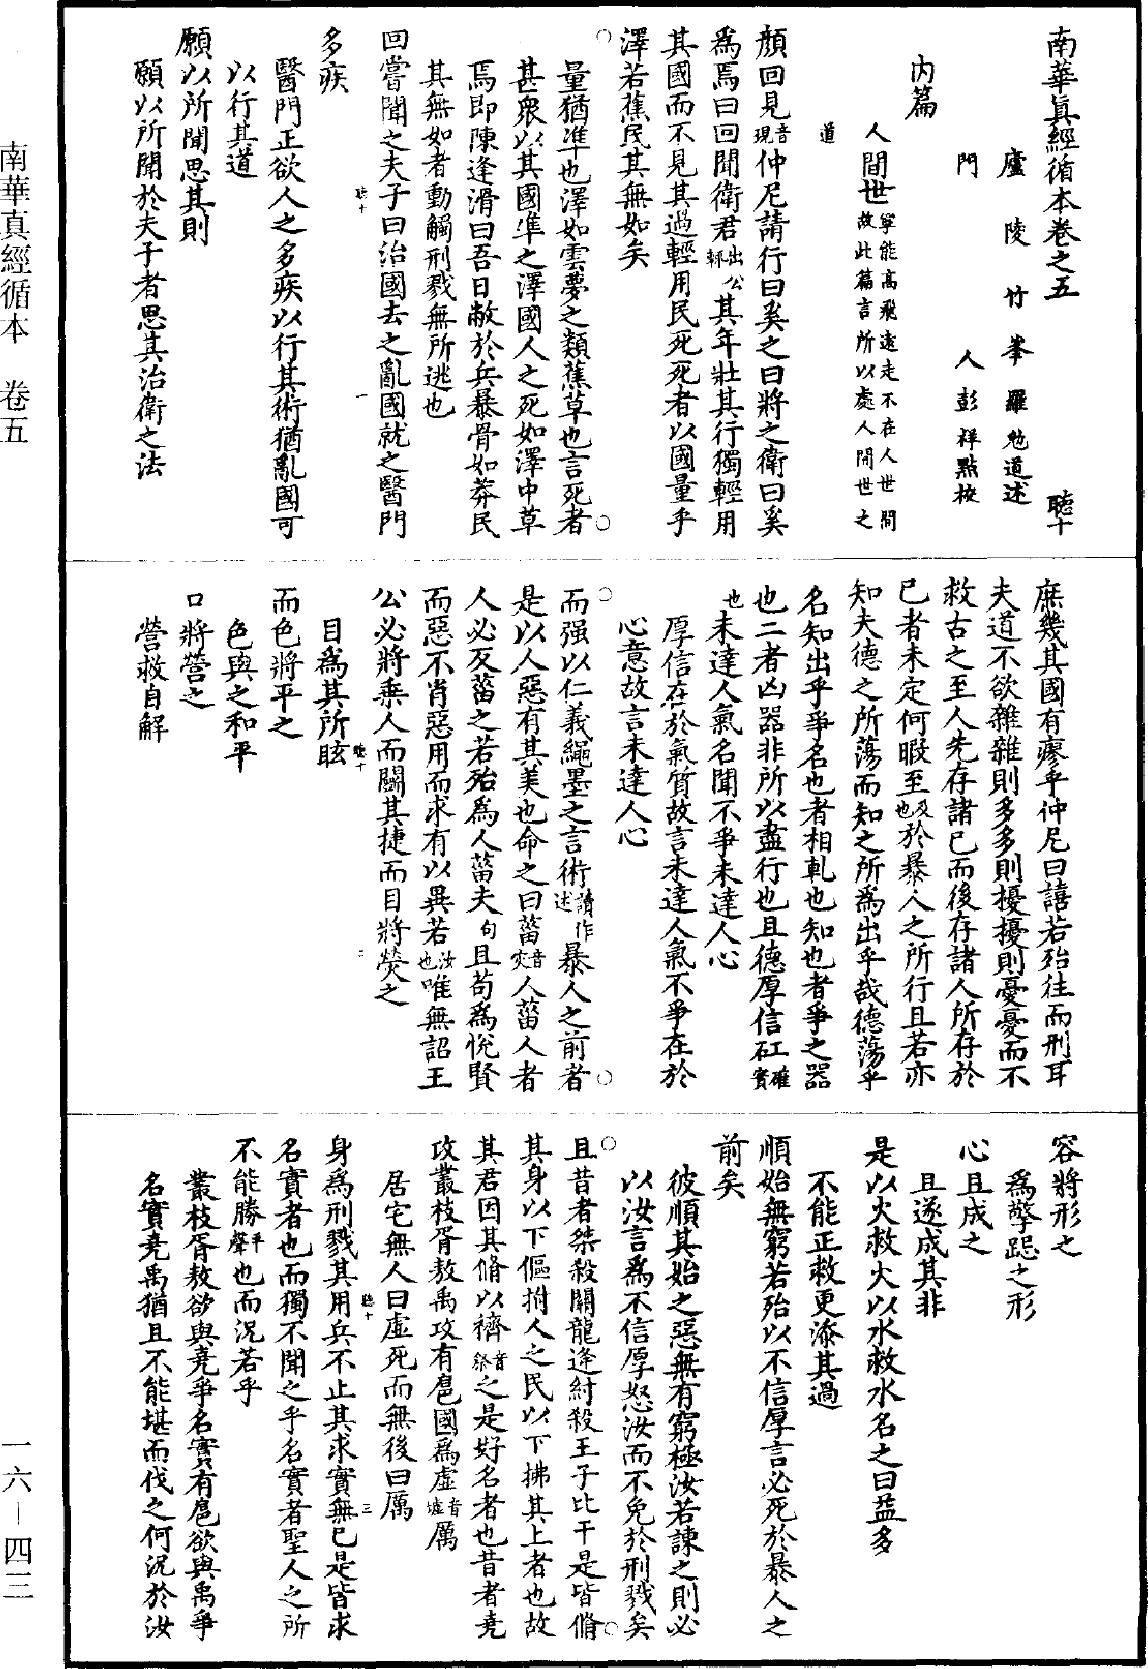 南華真經循本卷之五　聽十
廬陵竹峯羅勉道述
門人彭祥點校
內篇
人間世寧能高飛遠走不在人世間故此篇言所以處人間世之
道
顏回見音現仲尼請行曰奚之曰將之衛曰奚
爲焉曰回聞衛君出公輒其年壯其行獨輕用
其國而不見其過輕用民死死者以國量乎
澤若蕉民其無如矣
量猶準也澤如雲夢之類蕉草也言死者
甚衆以其國準之澤國人之死如澤中草
焉即陳逢滑曰吾日敝於兵暴骨如莽民
其無如者動觸刑戮無所逃也
回嘗聞之夫子曰治國去之亂國就之醫門
多疾
醫門正欲人之多疾以行其術猶亂國可
以行其道
願以所聞思其則
願以所聞於夫子者思其治衛之法
庶幾其國有瘳乎仲尼曰譆若殆往而刑耳
夫道不欲雜雜則多多則擾擾則憂憂而不
救古之至人先存諸己而後存諸人所存於
己者未定何暇至及也於暴人之所行且若亦
知夫德之所蕩而知之所爲出乎哉德蕩乎
名知出乎爭名也者相軋也知也者爭之器
也二者凶器非所以盡行也且德厚信矼確實
也未達人氣名聞不爭未達人心
厚信在於氣質故言未達人氣不爭在於
心意故言未達人心
而强以仁義繩墨之言術讀作述暴人之前者
是以人惡有其美也命之曰菑音灾人菑人者
人必反菑之若殆爲人菑夫句且苟爲悅賢
而惡不肖惡用而求有以異若汝也唯無詔王
公必將乘人而鬬其捷而目將熒之
目爲其所眩
而色將平之
色與之和平
口將營之
營救自解
容將形之
爲擎跽之形
心且成之
且遂成其非
是以火救火以水救水名之曰益多
不能正救更添其過
順始無窮若殆以不信厚言必死於暴人之
前矣
彼順其始之惡無有窮極汝若諫之則必
以汝言爲不信厚怒汝而不免於刑戮矣
且昔者桀殺關龍逢紂殺王子比干是皆脩
其身以下傴拊人之民以下拂其上者也故
其君因其脩以擠音祭之是好名者也昔者堯
攻叢枝胥敖禹攻有扈國爲虛音墟厲
居宅無人曰虛死而無後曰厲
身爲刑戮其用兵不止其求實無已是皆求
名實者也而獨不聞之乎名實者聖人之所
不能勝平聲也而況若乎
叢枝胥敖欲與堯爭名實有扈欲與禹爭
名實堯禹猶且不能堪而伐之何況於汝
聽十　一
聽十　二
聽十　三
南華真經循本　卷五
一六—四三